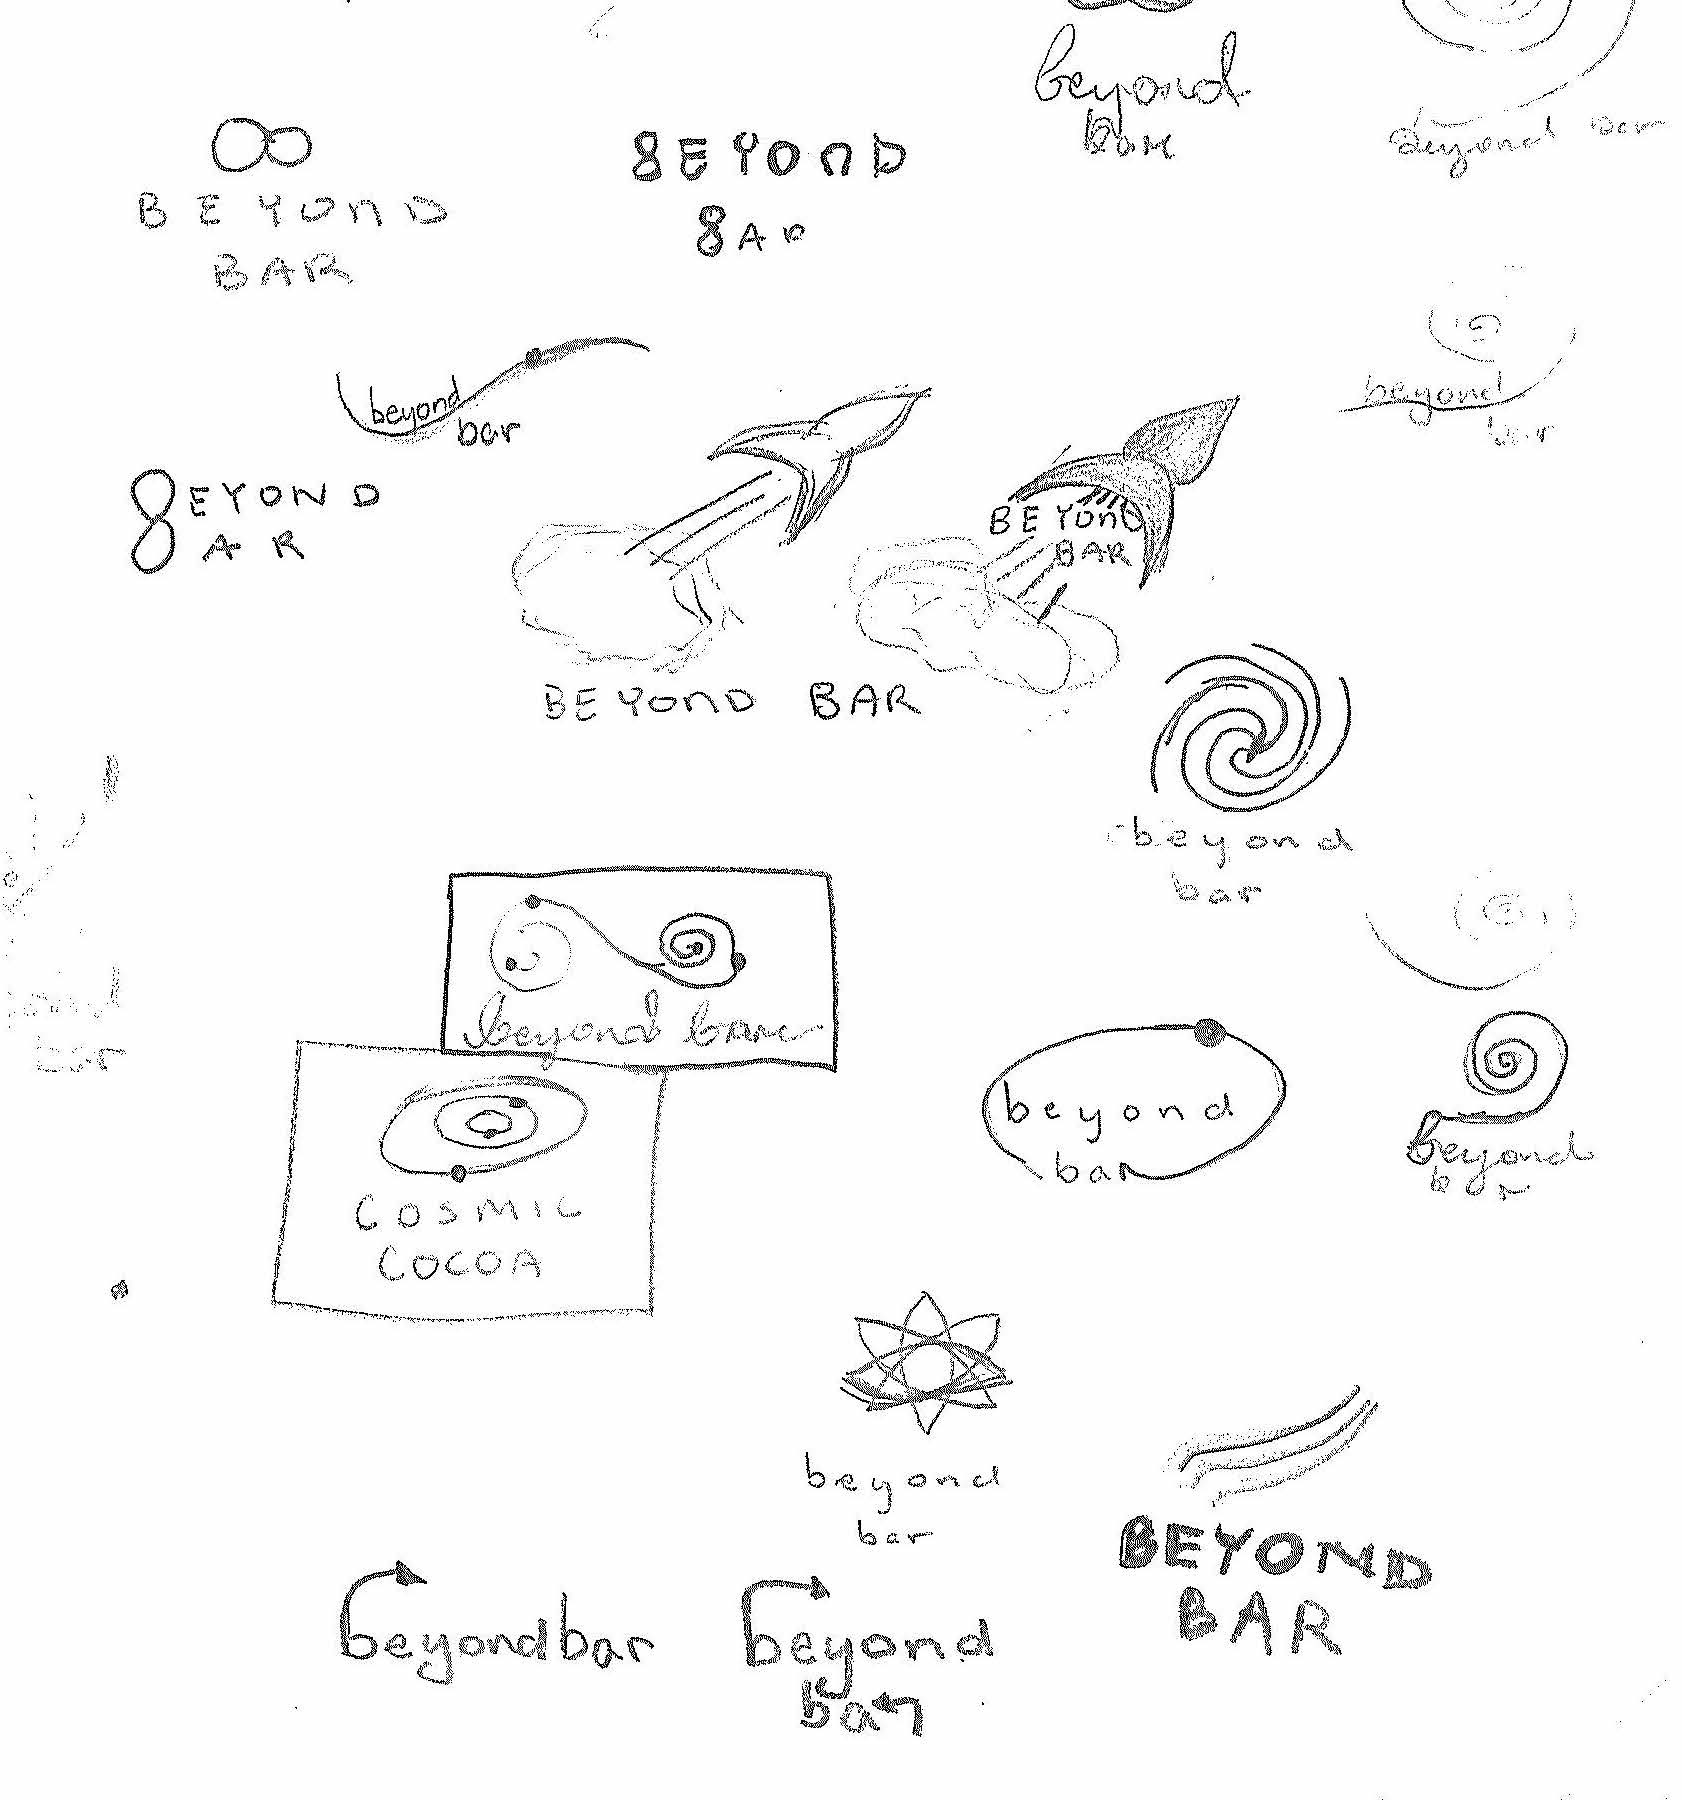 beyond
bar
beyond bar
BEYOND
BAR
8EYOND
8AR
beyond
bar
beyond
8EYOND
AR
BEYOND
BAR
BEYOND BAR
beyond
bar
bar
beyond bar
beyond
bar
COSMIC
COCOA
beyond
bar
beyond
bar
BEYOND
BAR
beyondbar
beyond
bar